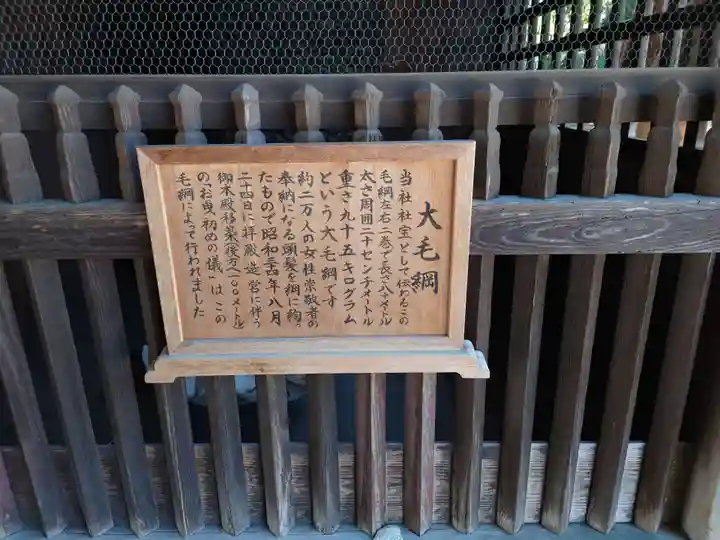 大毛綱
当社社宝として伝わるこの
毛綱左右二巻で長さ八十メートル
太さ周囲二十センチメートル
重さ九十五キログラム
という大毛綱です
約二万人の女性崇敬者の
奉納になる頭髪を綱に綯っ
たもので昭和三十四年八月
二十四日に拝殿造営に伴う
御本殿移築(後方へ一〇〇メートル)
の「お曳き初めの儀」はこの
毛綱によって行われました